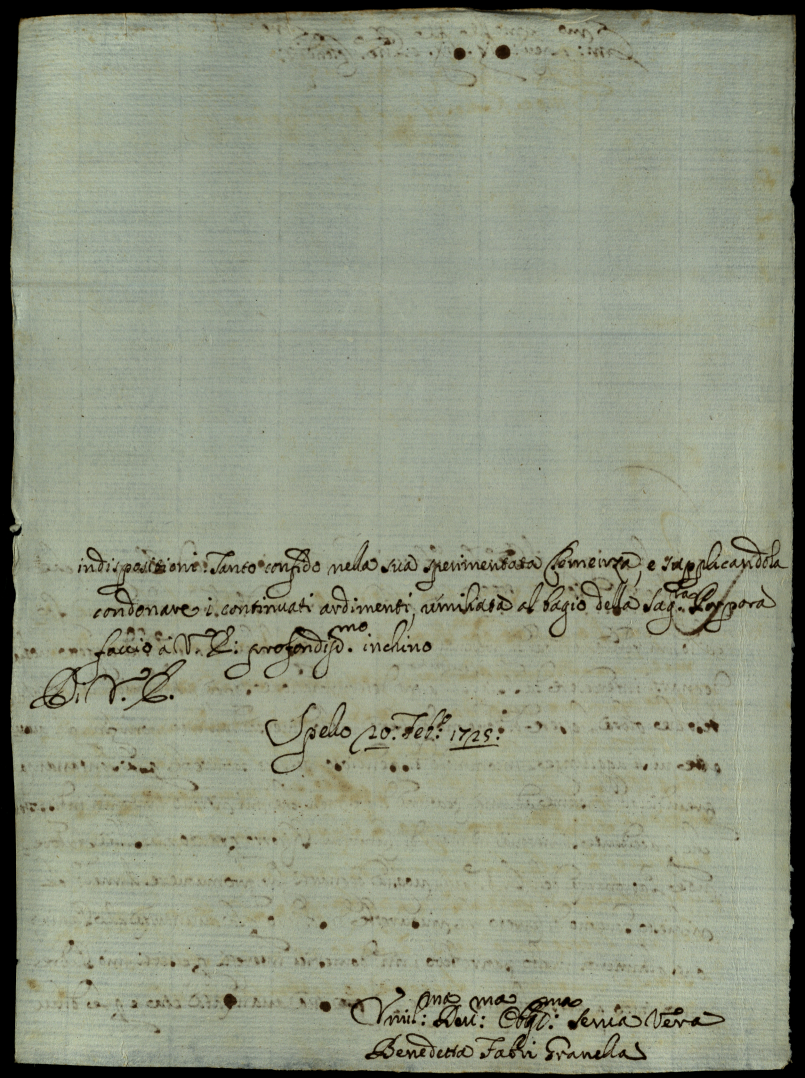 indispositione. Tanto confido nella sua sperimentata Clemenza, e supplicandola
condonare i continuati ardimenti, umiliata al bagio della Sag.ra Porpora
faccio à V. E: profondiss.mo inchino
Di V. E.
Spello 20: Feb.o 1725:
Umil:ma Deu:ma Obl:ma Serua Vera
Benedetta Fabri Granella